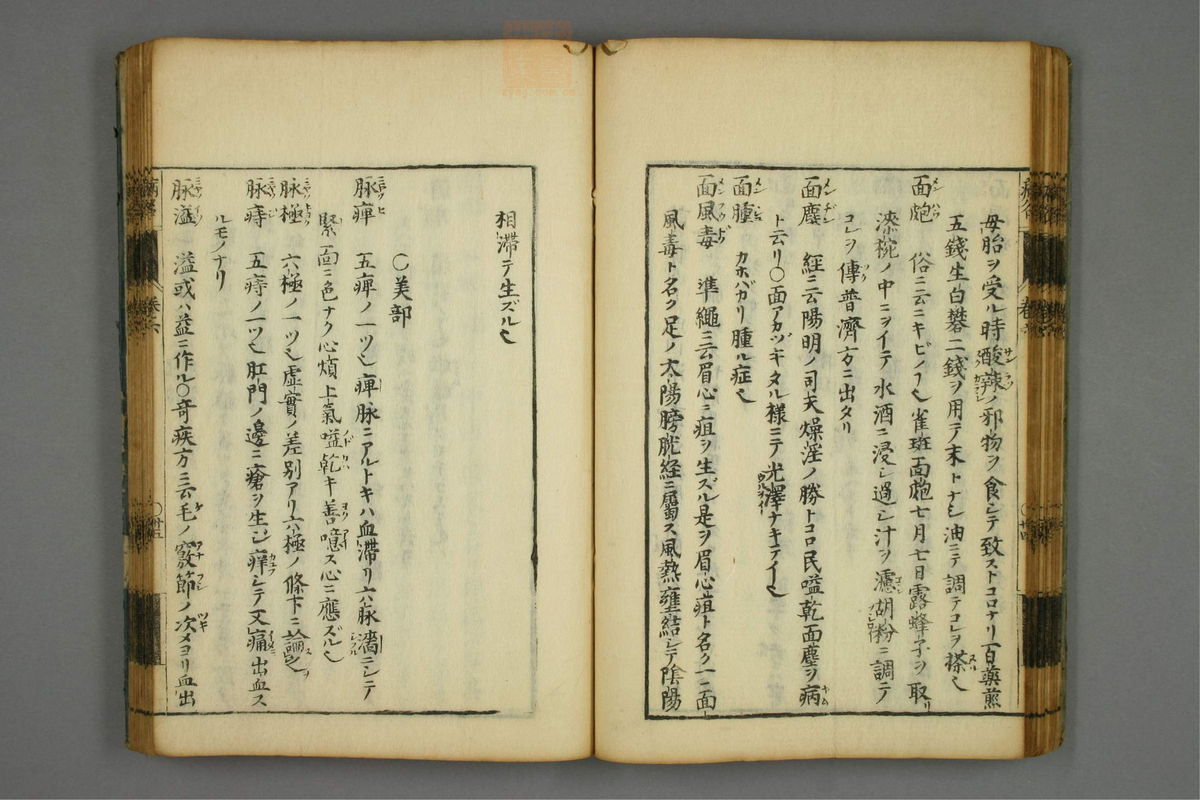 母胎ヲ受ル時酸辣ノ邪物ヲ食シテ致ストコロナリ百薬煎
五錢生白礬二錢ヲ用テ末トナシ油ニテ調テコレヲ搽也
面皰 俗ニ云ニキビノ也雀斑面皰七月七日露蜂子ヲ取
漆椀ノ中ニヲイテ水酒ニ浸シ過シ汁ヲ濾胡粉ニ調テ
コレヲ傅普濟方ニ出タリ
面塵 経ニ云陽明ノ司天燥淫ノ勝トコロ民嗌乾面塵ヲ病
ト云リ○面アカヅキタル様ニテ光澤ナキテイ也
面腫 カホバカリ腫ル症也
面風毒 準繩ニ云眉心ニ疽ヲ生ズル是ヲ眉心疽ト名ク一ニ面
風毒ト名ク足ノ太陽膀胱経ニ屬ス風熱壅結シテ陰陽
相滞テ生ズル也
○美部
脉痺 五痺ノ一ツ也痺脉ニアルトキハ血滞リ六脉濇ニシテ
緊面ニ色ナク心煩上氣嗌乾キ善噫ス心ニ應ズル也
脉極 六極ノ一ツ也虚實ノ差別アリ六極ノ條下ニ論之
脉痔 五痔ノ一ツ也肛門ノ邊ニ瘡ヲ生ジ痒シテ又痛出血ス
ルモノナリ
脉溢 溢或ハ益ニ作ル○奇疾方ニ云毛ノ竅節ノ次メヨリ血出